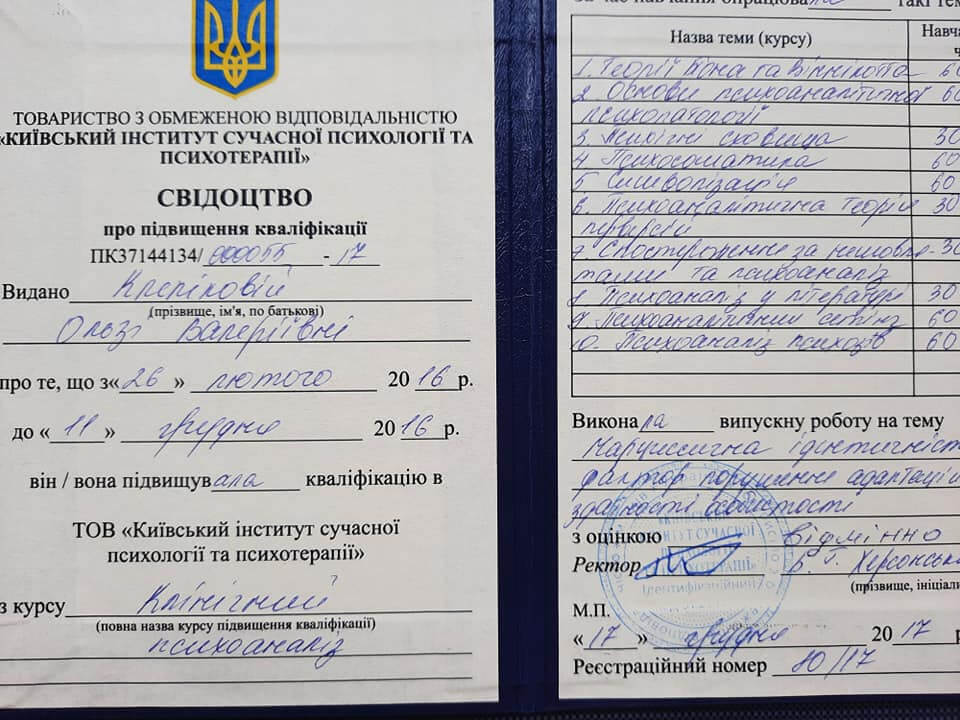 ТОВАРИСТВО З ОБМЕЖЕНОЮ ВІДПОВІДАЛЬНІСТЮ
«КИЇВСЬКИЙ ІНСТИТУТ СУЧАСНОЇ ПСИХОЛОГІЇ ТА
ПСИХОТЕРАПІЇ»
СВІДОЦТВО
про підвищення кваліфікації
ПК37144134/ 000055 - 17
Видано Клєпіковій
(прізвище, ім'я, по батькові)
Ользі Валеріївні
про те, що з« 26 » лютого 20 16 р.
до « 11 » грудня 20 16 р.
він / вона підвищувала кваліфікацію в
ТОВ «Київський інститут сучасної
психології та психотерапії»
з курсу Клінічний
(повна назва курсу підвищення кваліфікації)
психоаналіз
за час навчання опрацювала такі тем
Назва теми (курсу) Навча
1. Теорії Біона та Віннікотта 60
2. Основи психоаналітичної 60
психопатології
3. Психічні сховища 30
4. Психосоматика 60
5. Символізація 60
6. Психоаналітична теорія 30
перверсій
7. Спостереження за немовля- 30
тами та психоаналіз
8. Психоаналіз у літературі 30
9. Психоаналітичний сетінг 60
10. Психоаналіз психозів 60
Виконала випускну роботу на тему
Нарциссична ідентичніст
фактор порушення адаптаці
здатності особистості
з оцінкою відмінно
Ректор Б. Г. Херсонськ
(прізвище, ініціали
М.П.
« 17 » грудня 20 17 р
Реєстраційний номер 80/17